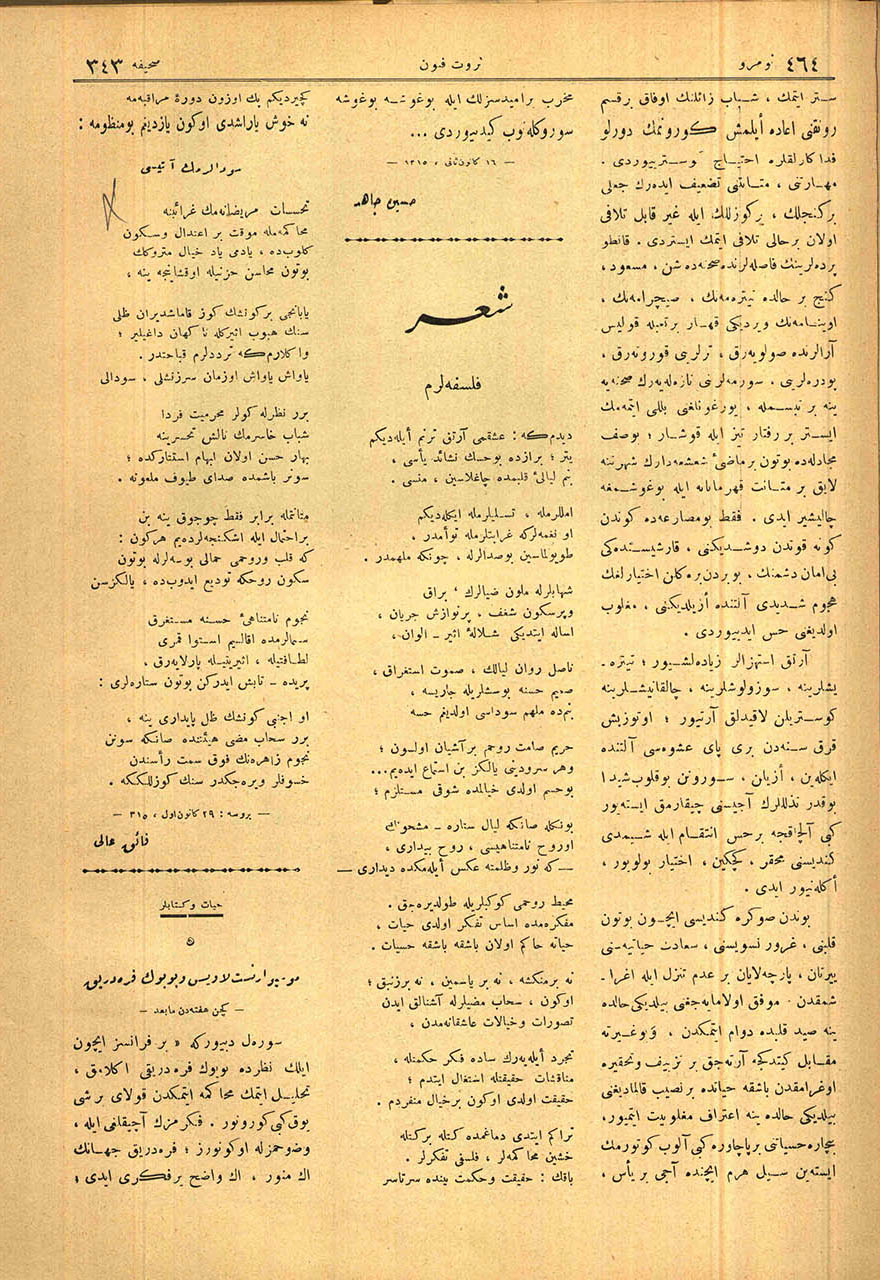 نومرو ٤٦٤
ثروت فنون
صحیفه ٣٤٣
ستر ایتمك ، شباب زائلنك اوفاق برقسم
رونقنی اعاده أیلمش كورونمك دورلو
فداكارلقلره احتیاج كوستریبوردی .
مهارتنی ، متانتنی تضعیف ایدەرك جعلی
بركنجلك ، بركوزللك ایله غیر قابل تلافی
اولان برحالی تلافی ایتمك ایستردی . قانطو
پردەلرینك فاصلەلرنده صحنەدە شن ، مسعود ،
كنج بر حالده تیترەمەنك ، صیچرامەنك ،
اوینامەنك ویردیكی قهار برتعبله قولیس
آرالرنده صولویەرق ، ترلرینی قوروتەرق ،
پودرەلرینی ، سورمەلرینی تازەلەیەرك صحنەیه
ینه بر تبسمله ، یورغونلغی بللی ایتمەمك
ایستر بر رفتار تیز ایله قوشار ؛ بوصف
مجادلەده بوتون برماضئ شعشعەدارك شهرتنه
لایق بر متانت قهرمانانه ایله بوغوشمغه
چالیشیر ایدی . فقط بومصارعەده كوندن
كونه قوتدن دوشدیكنی ، قارشیسندەكی
بی‌امان دشمنك ، بوردن‌بره كلن اختیارلغك
هجوم شدیدی آلتنده أزیلدیكنی ، مغلوب
اولدیغنی حس ایدییوردی .
آرتق استهزالر زیادەلشیور ؛ تیترە ـ
یشلرینه ، سوزولوشلرینه ، چالقانیشلرینه
كوستریلن لاقیدلق آرتیور ؛ اوتوزبش
قرق سنەدن بری پای عشوەسی آلتنده
ایكلەین ، أزیلن ، سورونن بوقلوب‌شیدا
بوقدر تذللرك آجیسنی چیقارمق ایستەیور
كبی آلچاقجه برحس انتقام ایله شیمدی
كندیسنی محقر ، كچكین ، اختیار بولویور ،
أكلەنیور ایدی .
بوندن صوكره كندیسی ایچون بوتون
قلبنی ، غرور نسویسنی ، سعادت حیاتیەسنی
ییرتان ، پارچەلایان بر عدم تنزل ایله اغرا ـ
شمقدن . موفق اولامایەجغنی بیلدیكی حالده
ینه صید قلبده دوام ایتمكدن ، وبوغیرته
مقابل كیتدكجه آرتەجق بر تزییف وتحقیره
اوغرامقدن باشقه حیاتده برنصیب قالمادیغنی
بیلدیكی حالده ینه اعتراف مغلوبیت ایتمیور،
بیچاره حسیاتنی برپاچاوره كبی آلوب كوتورمك
ایستەین سیل هرم ایچنده آجی بریأس ،
مخرب برامیدسزلك ایله بوغوشه بوغوشه
سوروكلەنوب كیدییوردی ...
— ١٦ كانون‌ثانی ، ١٣١٥ —
حسین جاهد
شعر
فلسفەلرم
دیدم‌كه : عشقمی آرتنی ترنم أیلەدیكم
یتر ؛ برازده بوحسك نشائد یأسی ،
بنم لیالئ قلبمده چاغلاسین ، منسی .
امللرمله ، تسلیلرمله ایكلەدیكم
او نغمەلركه غرابتلرمله توأمدر ،
طویولماسین بوصدالرله ، چونكه ملهمدر .
شهابلرله ملون ضیالرك ، براق
وپرسكون شغف ، پرنوازش جریان ،
اساله ایتدیكی شلالهٔ اثیر ـ الوان ،
ناصل روان لیالك ، صموت استغراق ،
صمیم حسنه بوسشلریله جاریسه ،
بنم‌ده ملهم سوداسی اولدیغم حسه
حریم صامت روحم برآشیان اولسون ؛
وهر سرودینی یالكز بن استماع ایدەیم...
بوحسم اولدی خیالمده شوقی مستلزم ؛
بونكله صانكه لیال ستاره ـ مشحونك
اوروح نامتناهیسی ، روح بیداری ،
— كه نور وظلمتنه عكس أیلەمكده دیداری —
محیط روحمی كوكبلریله طولدیرەجق .
مفكرەمده اساس تفكر اولدی حیات ،
حیاته حاكم اولان باشقه باشقه حسیات .
نه برمنكشه ، نه بر یاسمین ، نه برزنبق ؛
اوكون ، سحاب مضیلرله آشنالق ایدن
تصورات وخیالات عاشقانەمدن ،
تجرد أیلەیەرك ساده فكر حكمتله ،
مناقشات حقیقتله اشتغال ایتدم ؛
حقیقت اولدی اوكون برخیال منفردم .
تراكم ایتدی دماغمده كتله بركتله
خشین محاكمەلر ، فلسفی تفكرلر .
باقك : حقیقت وحكمت بینده سرتاسر
كچیردیكم بك اوزون دورهٔ مراقبەمه
نه خوش یاراشدی اوكون یازدیغم بومنظومه :
سودالرمك آتیسی
تحسسات مریضانەمك غرائبنه
محاكمەمله موقت بر اعتدال وسكون
كلوب‌ده ، یادمی یاد خیال متروكك
بوتون محاسن حزنیله اوقشاینجه ینه ،
یابانجی بركونشك كوز قاماشدیران ظلی
سنك هبوب اثیركله ناكهان داغیلیر ؛
واكلارم‌كه ترددلرم قباحتدر .
یاواش یاواش اوزمان سرزنشلی ، سودالی
برر نظرله كولر محرمیت فردا
شباب خاسرمك نالش تحسرینه
بهار حسن اولان ابهام استقباركده ؛
سونر باشمده صدای طیوف ملعونه .
متانتمله برابر فقط چوجوق ینه بن
براحتمال ایله اشكنجەلردەیم هركون :
كه قلب وروحمی حمالی بوسەلرله بوتون
سكون روحكه تودیع ایدوب‌ده ، یالكزسن
نجوم نامتناهئ حسنه مستغرق
سمالرمده اقالیم استوا قمری
لطافتیله ، اثیریتیله پارلایەرق ،
پریده ـ تابش ایدركن بوتون ستارەلری :
او اجنبی كونشك ظل پایداری ینه ،
برر سحاب مضی هیئتنده صانكه سونن
نجوم زاهرەنك فوق سمت رأسندن
خسوفلر ویرەجكدر سنك كوزللككه .
— بروسه : ٢٩ كانون اول ، ٣١٥ —
فائق عالی
حیات وكتابلر
٥
موسیو ارنست لاویس وبویوك فرەدریق
— كچن هفتەدن مابعد —
سورەل دییوركه « بر فرانسز ایچون
ایلك نظرده بویوك فرەدریقی اكلامق ،
تحلیل ایتمك محاكمه ایتمكدن قولای برشی
یوق كبی كورونور . فكرمزك آچیقلغی ایله ،
وضوحمزله اوكونورز ؛ فرەدریق جهانك
اك منور ، اك واضح برفكری ایدی ؛